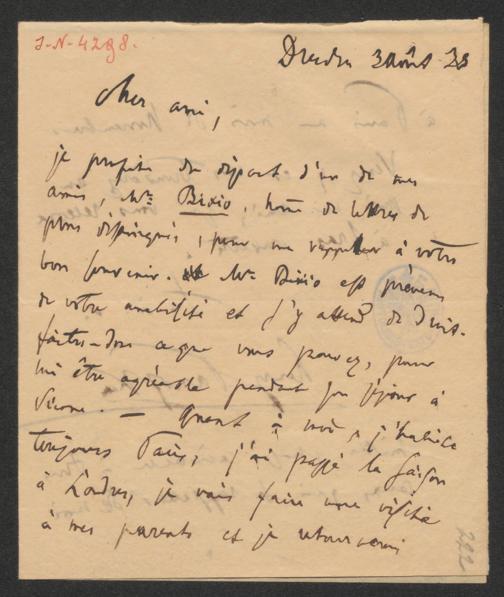 I.N. 4298.
Dresden 3 Août
cher ami,
je profite du départ d'un de mes
amis, Mr. Bixio, homme de lettres des
plus distingués, pour me rappeler à votre
bon souvenir. Mr. Bixio est prévenu
de votre amabilité et j'y attend de droit.
faites-donc ce que vous pouvez, pour
lui être agréable pendant son séjour à
Vienne. — Quant à moi, j'habite
toujours Paris, j'ai passé la saison
à Londres, je vais faire une visite
à mes parents et je retournerai
222